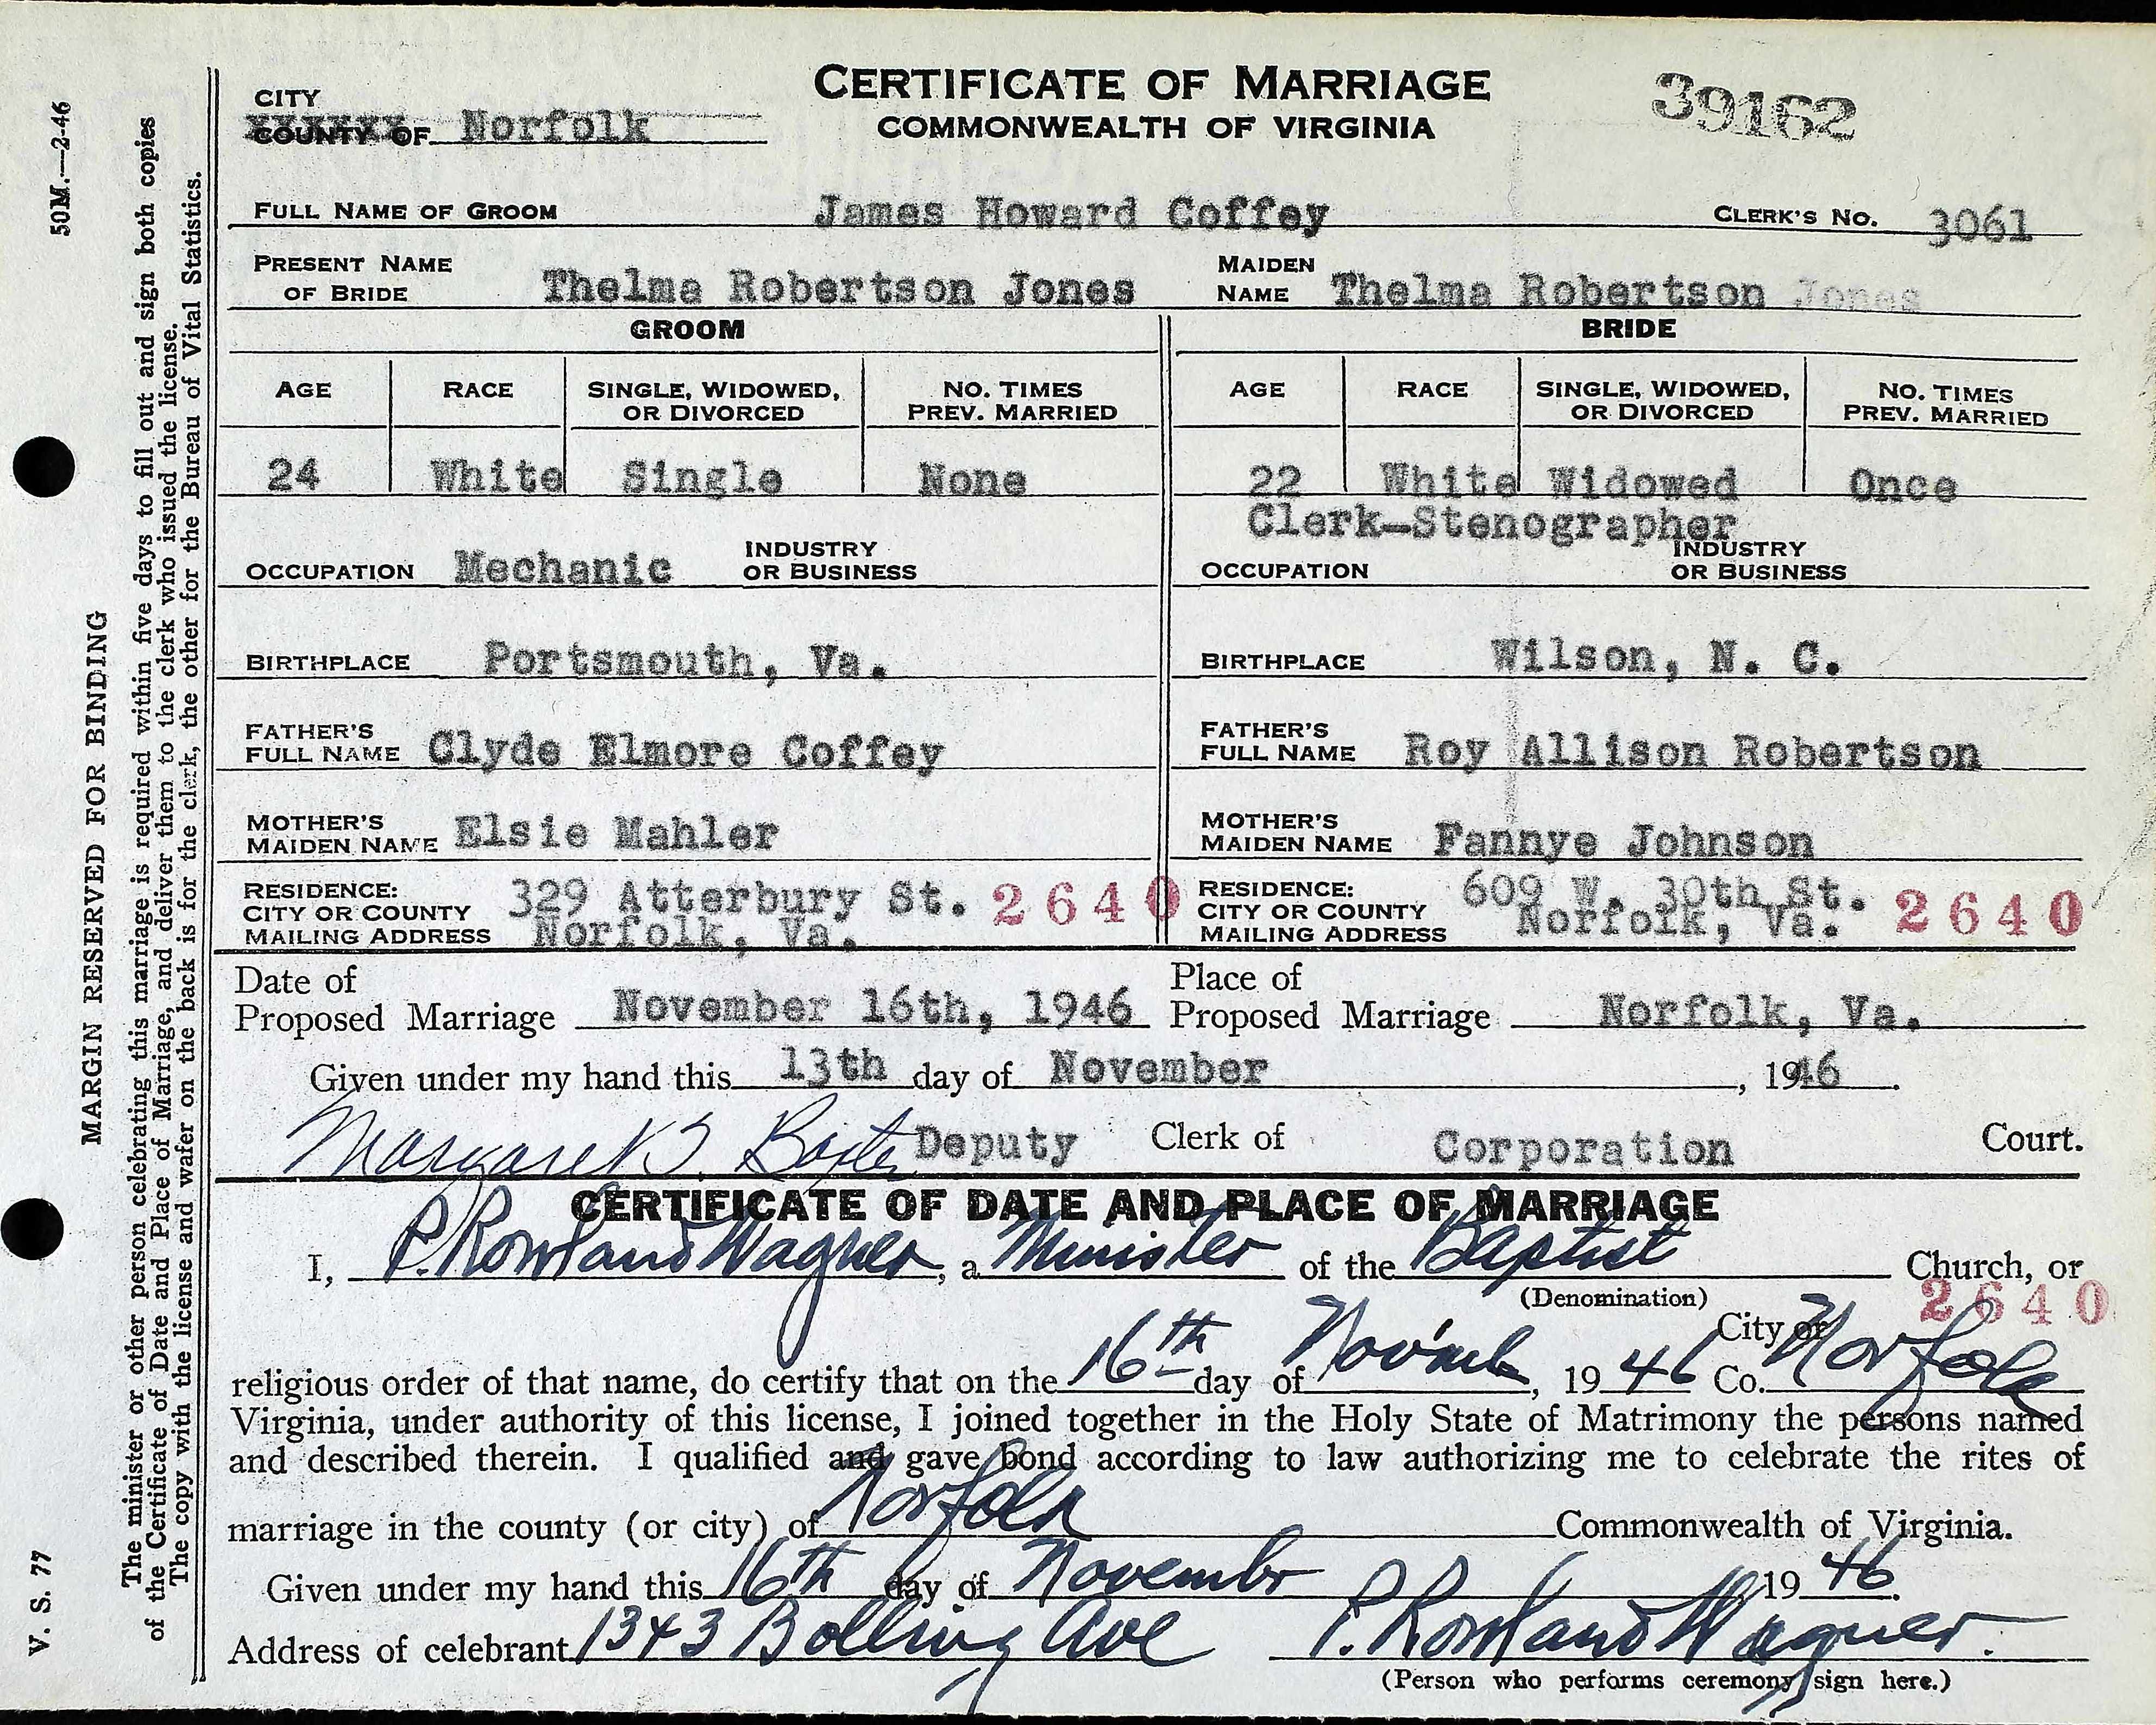 CERTIFICATE OF MARRIAGE
COMMONWEALTH OF VIRGINIA
39162
CITY
COUNTY OF Norfolk
FULL NAME OF GROOM James Howard Coffey CLERK'S NO. 3061
PRESENT NAME OF BRIDE Thelma Robertson Jones MAIDEN NAME Thelma Robertson Jones
GROOM BRIDE
AGE RACE SINGLE, WIDOWED, OR DIVORCED NO. TIMES PREV. MARRIED AGE RACE SINGLE, WIDOWED, OR DIVORCED NO. TIMES PREV. MARRIED
24 White Single None 22 White Widowed Once
Clerk-Stenographer
OCCUPATION Mechanic INDUSTRY OR BUSINESS OCCUPATION INDUSTRY OR BUSINESS
BIRTHPLACE Portsmouth, Va. BIRTHPLACE Wilson, N. C.
FATHER'S FULL NAME Clyde Elmore Coffey FATHER'S FULL NAME Roy Allison Robertson
MOTHER'S MAIDEN NAME Elsie Mahler MOTHER'S MAIDEN NAME Fannye Johnson
RESIDENCE: CITY OR COUNTY MAILING ADDRESS 329 Atterbury St. Norfolk, Va. 2640 RESIDENCE: CITY OR COUNTY MAILING ADDRESS 609 W. 30th St. Norfolk, Va. 2640
Date of Proposed Marriage November 16th, 1946 Place of Proposed Marriage Norfolk, Va.
Given under my hand this 13th day of November, 1946.
Margaret S. Baxter Deputy Clerk of Corporation Court.
CERTIFICATE OF DATE AND PLACE OF MARRIAGE
I, P. Rowland Wagner, a Minister of the Baptist Church, or
(Denomination) 2640
City or
religious order of that name, do certify that on the 16th day of Novemb, 1946 Co. Norfolk
Virginia, under authority of this license, I joined together in the Holy State of Matrimony the persons named
and described therein. I qualified and gave bond according to law authorizing me to celebrate the rites of
marriage in the county (or city) of Norfolk Commonwealth of Virginia.
Given under my hand this 16th day of Novembr 1946.
Address of celebrant 1343 Bolling Ave P. Rowland Wagner.
(Person who performs ceremony sign here.)
50M.—2-46
MARGIN RESERVED FOR BINDING
V. S. 77
The minister or other person celebrating this marriage is required within five days to fill out and sign both copies
of the Certificate of Date and Place of Marriage, and deliver them to the clerk who issued the license.
The copy with the license and wafer on the back is for the clerk, the other for the Bureau of Vital Statistics.